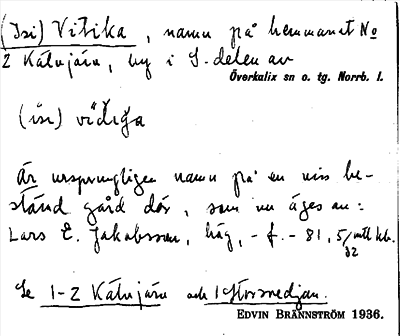 (Isi) Vitika, namn på hemmanet No
2 Kälvjärv, by i S. delen av
Överkalix sn o. tg. Norrb. l.
(isi) vidiga
Är ursprungligen namn på en viss be-
stånd gård där, som nu äges av:
Lars E. Jakobsson, häg, - f. - 81, 5/ mtl
32
Se 1-2 Kälvjärv och 1 Storsvedjan.
EDVIN BRÄNNSTRÖM 1936.